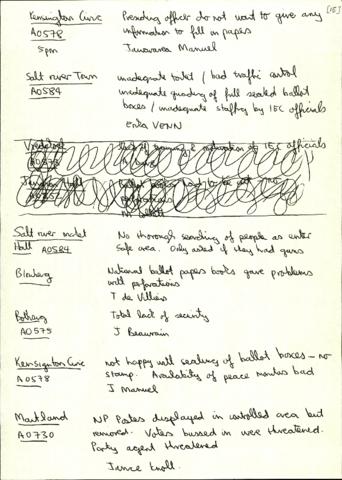 [15]
Kensington Civic Presiding officer do not want to give any
A0578 information to fill in papers
5pm Manuel
Salt river Town inadequate toilet / bad traffic control
A0584 inadequate guarding of full sealed ballot
boxes / inadequate staffing by IEC officials
Erika VENN
Vredehoek lack of training & motivation of IEC officials
Ballot
Salt river
Hall A0584 No thorough searching of people as enter
safe area. Only asked if they had guns
National ballot papers books gave problems
with perforations
T de Villiers
Bothasig Total lack of security
A0575 J Beaurain
Kensignton Civic not happy with sealing of ballot boxes – no
A0578 stamp. Availability of peace monitors bad
J Manuel
Maitland NP Posters displayed in controlled area but
A0730 removed. Voters bussed in were threatened.
Party agent threatened
Janice Knoll.